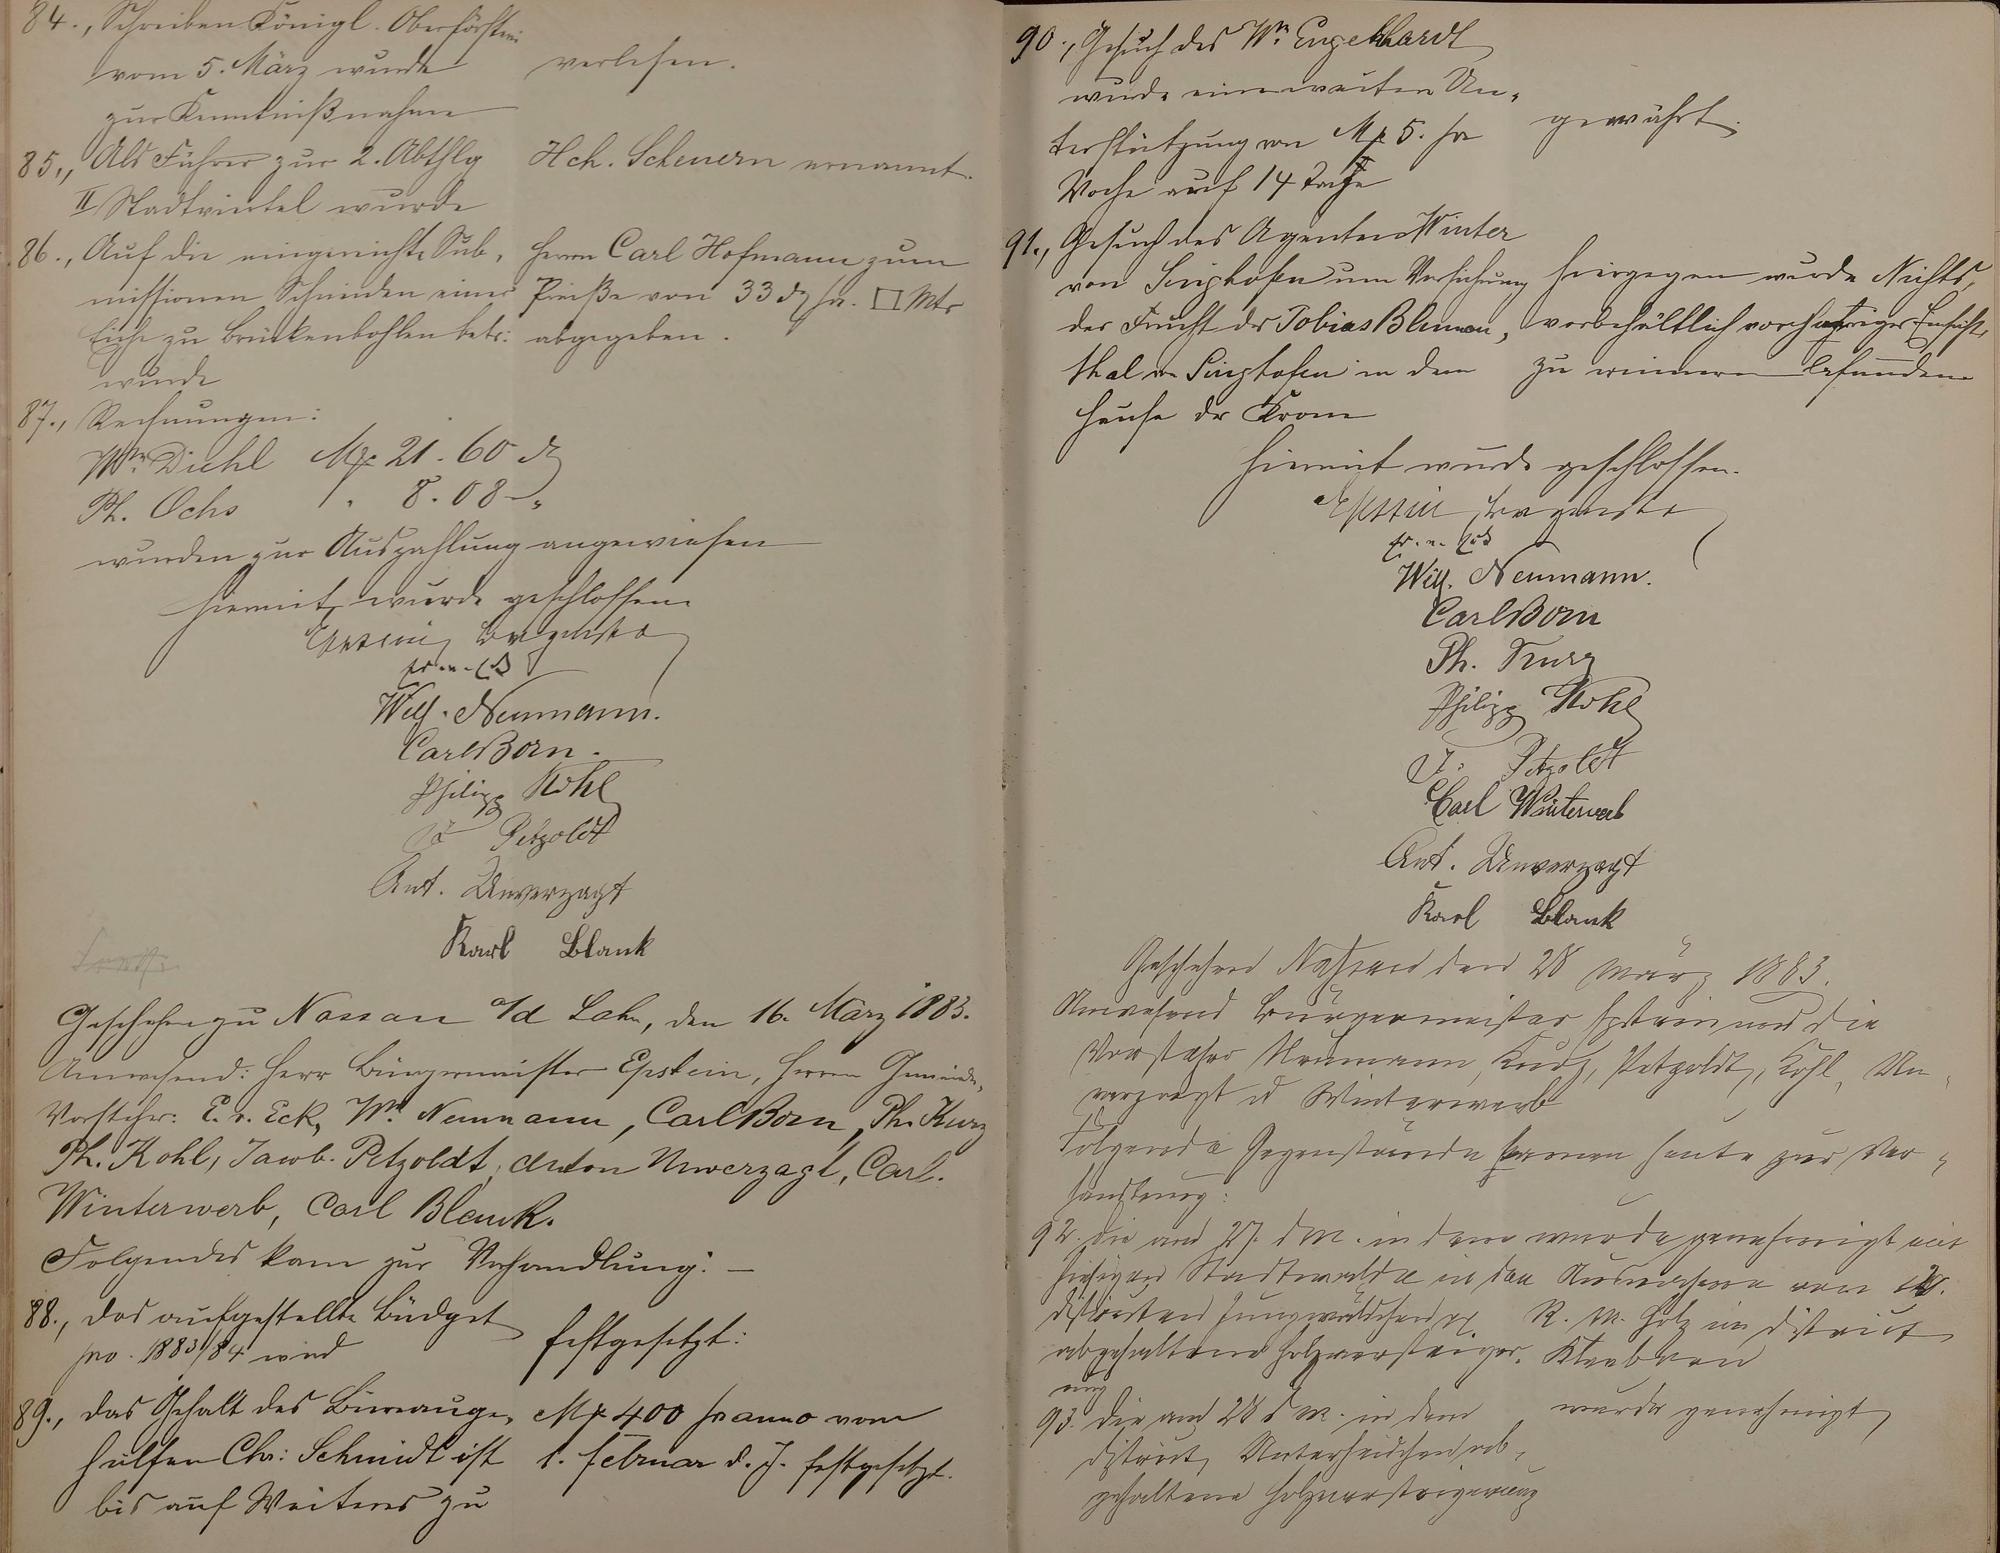 84., Schreiben Königl. Oberförsterei
vom 5. März wurde
zur Kenntnißnahme
verlesen.
85., Als Führer zur 2. Abthlg
II Stadtviertel wurde
Hch. Scheuern ernannt.
86., Auf die eingereichte Sub-
missionen Schneiden einer
Eiche zu Brückenbohlen betr:
wurde
Herrn Carl Hofmann zum
Preiße von 33 ₰ pr. □ Mtr
abgegeben.
87., Rechnungen:
Wm. Diehl Mk 21. 60 ₰
Ph. Ochs " 8. 08 "
wurden zur Auszahlung angewiesen
Hiermit wurde geschlossen
Epstein Bürgermstr
Wilh. Neumann.
Carl Born.
Philipp Kohl
J. Petzoldt
Ant. Unverzagt
Karl Blank
Geschehen zu Nassau a/d Lahn, den 16. März 1883.
Anwesend: Herr Bürgermeister Epstein, Herren Gemeinde-
Vorsteher: E. v. Eck, Wm. Neumann, Carl Born, Ph. Kurz
Ph. Kohl, Jacob Petzoldt, Anton Unverzagt, Carl
Winterwerb, Carl Blank.
Folgendes kam zur Verhandlung: —
88., Das aufgestellte Büdget
pro. 1883/84 wird
festgesetzt:
89., Das Gehalt des Bureauge-
hülfen Chr: Schmidt ist
bis auf Weiteres zu
Mk 400 pr anno vom
1. Februar d. J. festgesetzt.
90., Gesuch des Wm. Engelhardt
wurde eine weitere Un-
terstützung von Mk 5. pr
Woche auf 14 Tage
gewährt.
91., Gesuch des Agenten Winter
von Singhofen um Versicherung
der Frucht des Tobias Blumen-
thal von Singhofen in dem
Hause der Krone
Hiergegen wurde Nichts,
vorbehältlich vorheriger Einsicht,
zu erinnern befunden
Hiermit wurde geschlossen.
Epstein Bürgermstr
Wilh. Neumann.
Carl Born
Ph. Kurz
Philipp Kohl
J. Petzoldt
Carl Winterwerb
Ant. Unverzagt
Karl Blank
Geschehen Nassau den 28 März 1883.
Anwesend Bürgermeister Epstein und die
Vorsteher Neumann, Kurz, Petzoldt, Kohl, Un-
verzagt u Winterwerb
Folgende Gegenstände kamen heute zur Ver-
handlung:
92. Die am 27. d M. in dem
hiesigen Stadtwalde in den
Distrikten Jungwäldchen pp
abgehaltene Holzversteiger-
ung
wurde genehmigt mit
Ausnahme von
R. M. Holz im District
93. Die am 28 d M. in dem
District Unterheidchen ab-
gehaltene Holzversteigerung
wurde genehmigt